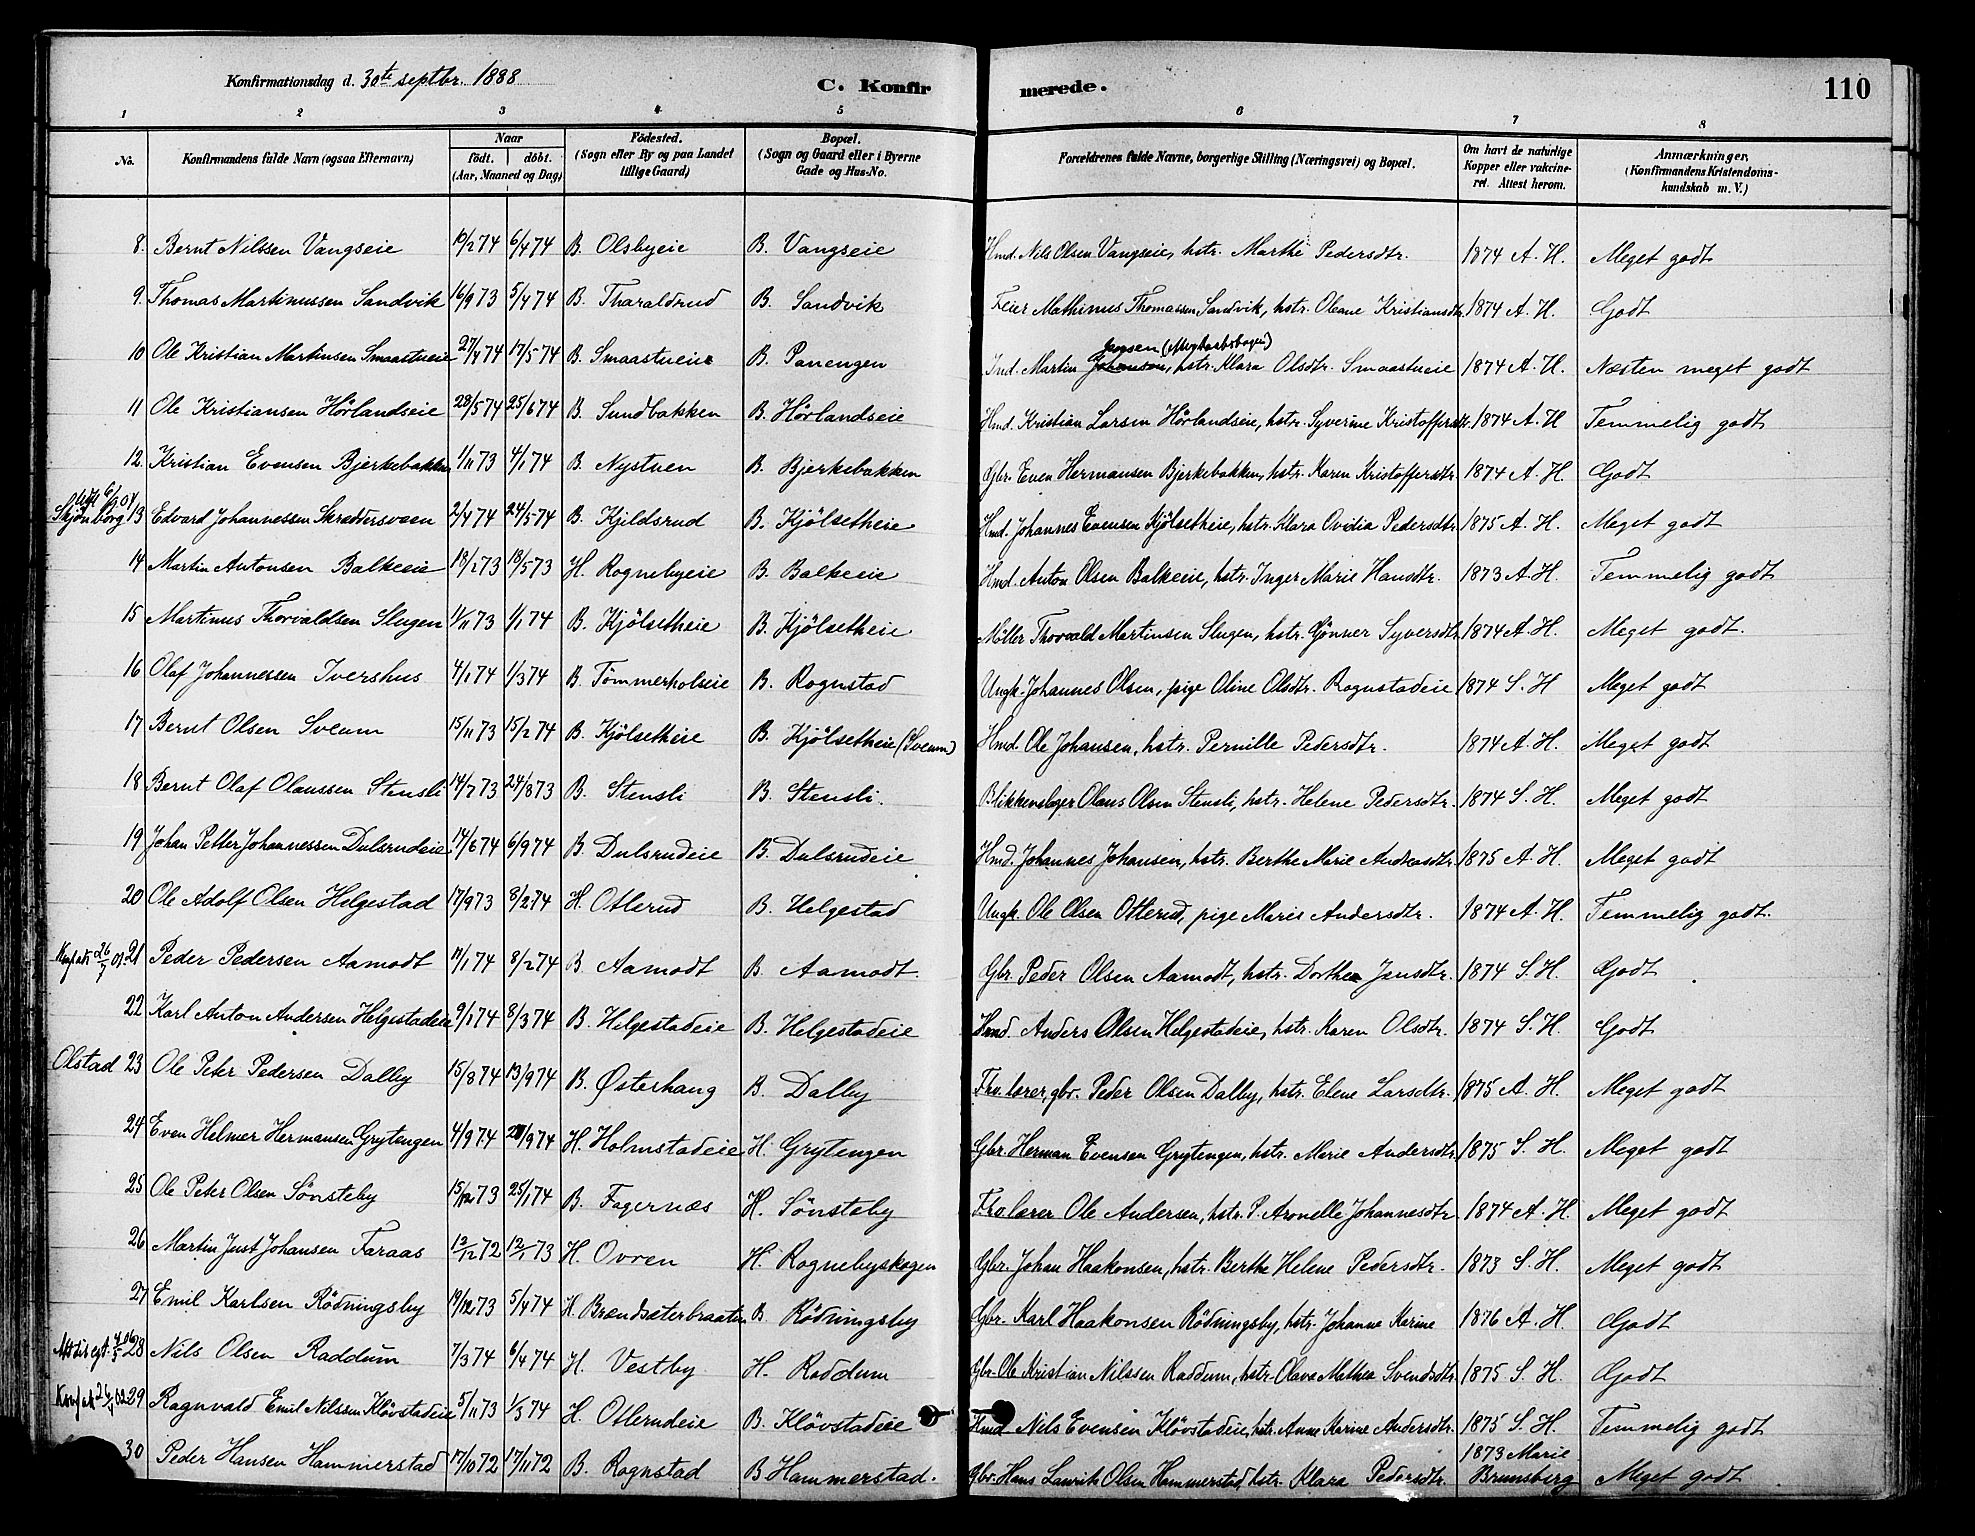 Konfirmationsdag d. 30te septbr. 1888
C. Konfir merede. 110
1 2 3 4 5 6 7 8
No. Konfirmandens fulde Navn (ogsaa Efternavn) Naar född. döbt. (Aar, Maaned og Dag) Födested. (Sogn eller By og paa Landet tillige Gaard) Bopæl. (Sogn og Gaard eller i Byerne Gade og Hus-No. Forældrenes fulde Navne, borgerlige Stilling (Næringsvei) og Bopæl. Om havt de naturlige Kopper eller vakcineret. Attest herom. Anmærkninger. (Konfirmandens Kristendomskundskab m. V.)
8. Bernt Nilssen Vangseie 10/2 74 6/4 74 B. Olsbyeie B. Vangseie Hmd. Nils Olsen Vangseie, hstr. Marthe Pedersdtr. 1874 A. H. Meget godt
9. Thomas Martinussen Sandvik 16/9 73 5/4 74 B. Tharaldrud B. Sandvik Feier Mathinus Thomassen Sandvik, hstr. Oleane Kristiansdtr. 1874 A. H. Godt
10 Ole Kristian Martinsen Smaastueie 27/4 74 17/5 74 B. Smaastueie B. Panengen Ind. Martin Johansen, hstr. Klara Olsdtr. Smaastueie 1874 A. H. Næsten meget godt
11 Ole Kristiansen Hörlandseie 28/5 74 25/6 74 B. Sundbakken B. Hörlandseie Hmd. Kristian Larsen Hörlandseie, hstr. Syverine Kristoffersdtr. 1874 A. H Temmelig godt
12. Kristian Evensen Bjerkebakken 1/11 73 4/1 74 B. Nystuen B. Bjerkebakken Gbr. Even Hermansen Bjerkebakken, hstr. Karen Kristoffersdtr. 1874 A. H. Godt
Skjönborg 13 Edvard Johannessen Skræddersveen 2/4 74 24/5 74 B. Kjildsrud B. Kjölsetheie Hmd. Johannes Evensen Kjölsetheie, hstr. Klara Ovidia Pedersdtr. 1875 A. H. Meget godt
14 Martin Antonsen Balkeeie 18/1 73 18/5 73 H. Rognebyeie B. Balkeeie Hmd. Anton Olsen Balkeeie, hstr. Inger Marie Hansdtr. 1873 A. H. Temmelig godt
15 Martinus Thorvaldsen Slugen 11/11 73 1/1 74 B. Kjölsetheie B. Kjölsetheie Möller Thorvald Martinsen Slugen, hstr. Gönner Syversdtr. 1874 A. H. Meget godt.
16 Olaf Johannessen Ivershus 4/1 74 1/3 74 B. Tömmerholseie B. Rognstad Ungk. Johannes Olsen, pige Oline Olsdtr. Rognstadeie 1874 S. H Meget godt
17 Bernt Olsen Sveum 15/11 73 15/2 74 B. Kjölsetheie B. Kjölsetheie (Sveum) Hmd. Ole Johansen, hstr. Pernille Pedersdtr. 1874 A. H. Meget godt
18 Bernt Olaf Olaussen Stensli 14/7 73 24/8 73 B. Stensli B. Stensli. Blikkenslager Olaus Olsen Stensli, hstr. Helene Pedersdtr. 1874 S. H. Meget godt
19 Johan Petter Johannessen Dulsrudeie 14/6 74 6/9 74 B. Dulsrudeie B. Dulsrudeie Hmd. Johannes Johansen, hstr. Berthe Marie Andreasdtr. 1875 A. H. Meget godt
20 Ole Adolf Olsen Helgestad 17/9 73 8/2 74 H. Otterud B. Helgestad Ungk. Ole Olsen Otterud, pige Maris Andersdtr. 1874 A. H. Temmelig godt.
21 Peder Pedersen Aamodt 11/1 74 8/2 74 B Aamodt B Aamodt Gbr Peder Olsen Aamodt, hstr. Dorthea Jensdtr. 1874 S. H. Godt
22 Karl Anton Andersen Helgestadeie 9/1 74 8/3 74 B. Helgestadeie B. Helgestadeie Hmd. Anders Olsen Helgestadeie, hstr. Karen Olsdtr. 1874 S. H. Godt
Olstad 23 Ole Peter Pedersen Dalby 15/8 74 13/9 74 B. Østerhaug B. Dalby gbr. Peder Olsen Dalby, hstr. Elene Larsdtr. 1875 A. H. Meget godt
24 Even Helmer Hermansen Grytengen 4/9 74 20/9 74 H. Holmstadeie H. Grytengen Gbr. Herman Evensen Grytengen, hstr. Marie Andersdtr. 1875 S. H. Meget godt
25 Ole Peter Olsen Sönsteby 15/12 73 25/1 74 B. Fagernæs H. Sönsteby Ole Andersen, hstr. P. Aronelle Johannesdtr 1874 A. H. Meget godt
26 Martin Just Johansen Faraas 13/12 72 12/1 73 H. Ovren H. Rognebyskogen Gbr. Johan Haakonsen, hstr. Berthe Helene Pedersdtr. 1873 S. H. Meget godt
27 Emil Karlsen Rödningsby 19/12 73 5/4 74 H. Brændsæterbraaten B Rödningsby Gbr. Karl Haakonsen Rödningsby, hstr. Johanne Karine 1876 A. H. Godt
28 Nils Olsen Raddum 7/3 74 6/4 74 H. Vestby H. Raddum Gbr. Ole Kristian Nilssen Raddum, hstr. Olava Mathea Svendsdtr. 1875 S. H. Godt
29 Ragnvald Emil Nilssen Klövstadeie 5/11 73 1/3 74 H. Otterudeie B. Klövstadeie Hmd Nils Evensen Klövstadeie, hstr. Anne Karine Andersdtr. 1875 S. H. Temmelig godt
30 Peder Hansen Hammerstad 17/10 72 17/11 72 B. Rognstad B Hammerstad. Gbr. Hans Laurits Olsen Hammerstad, hstr. Klara Pedersdtr. 1873 Marie Brunsberg Meget godt